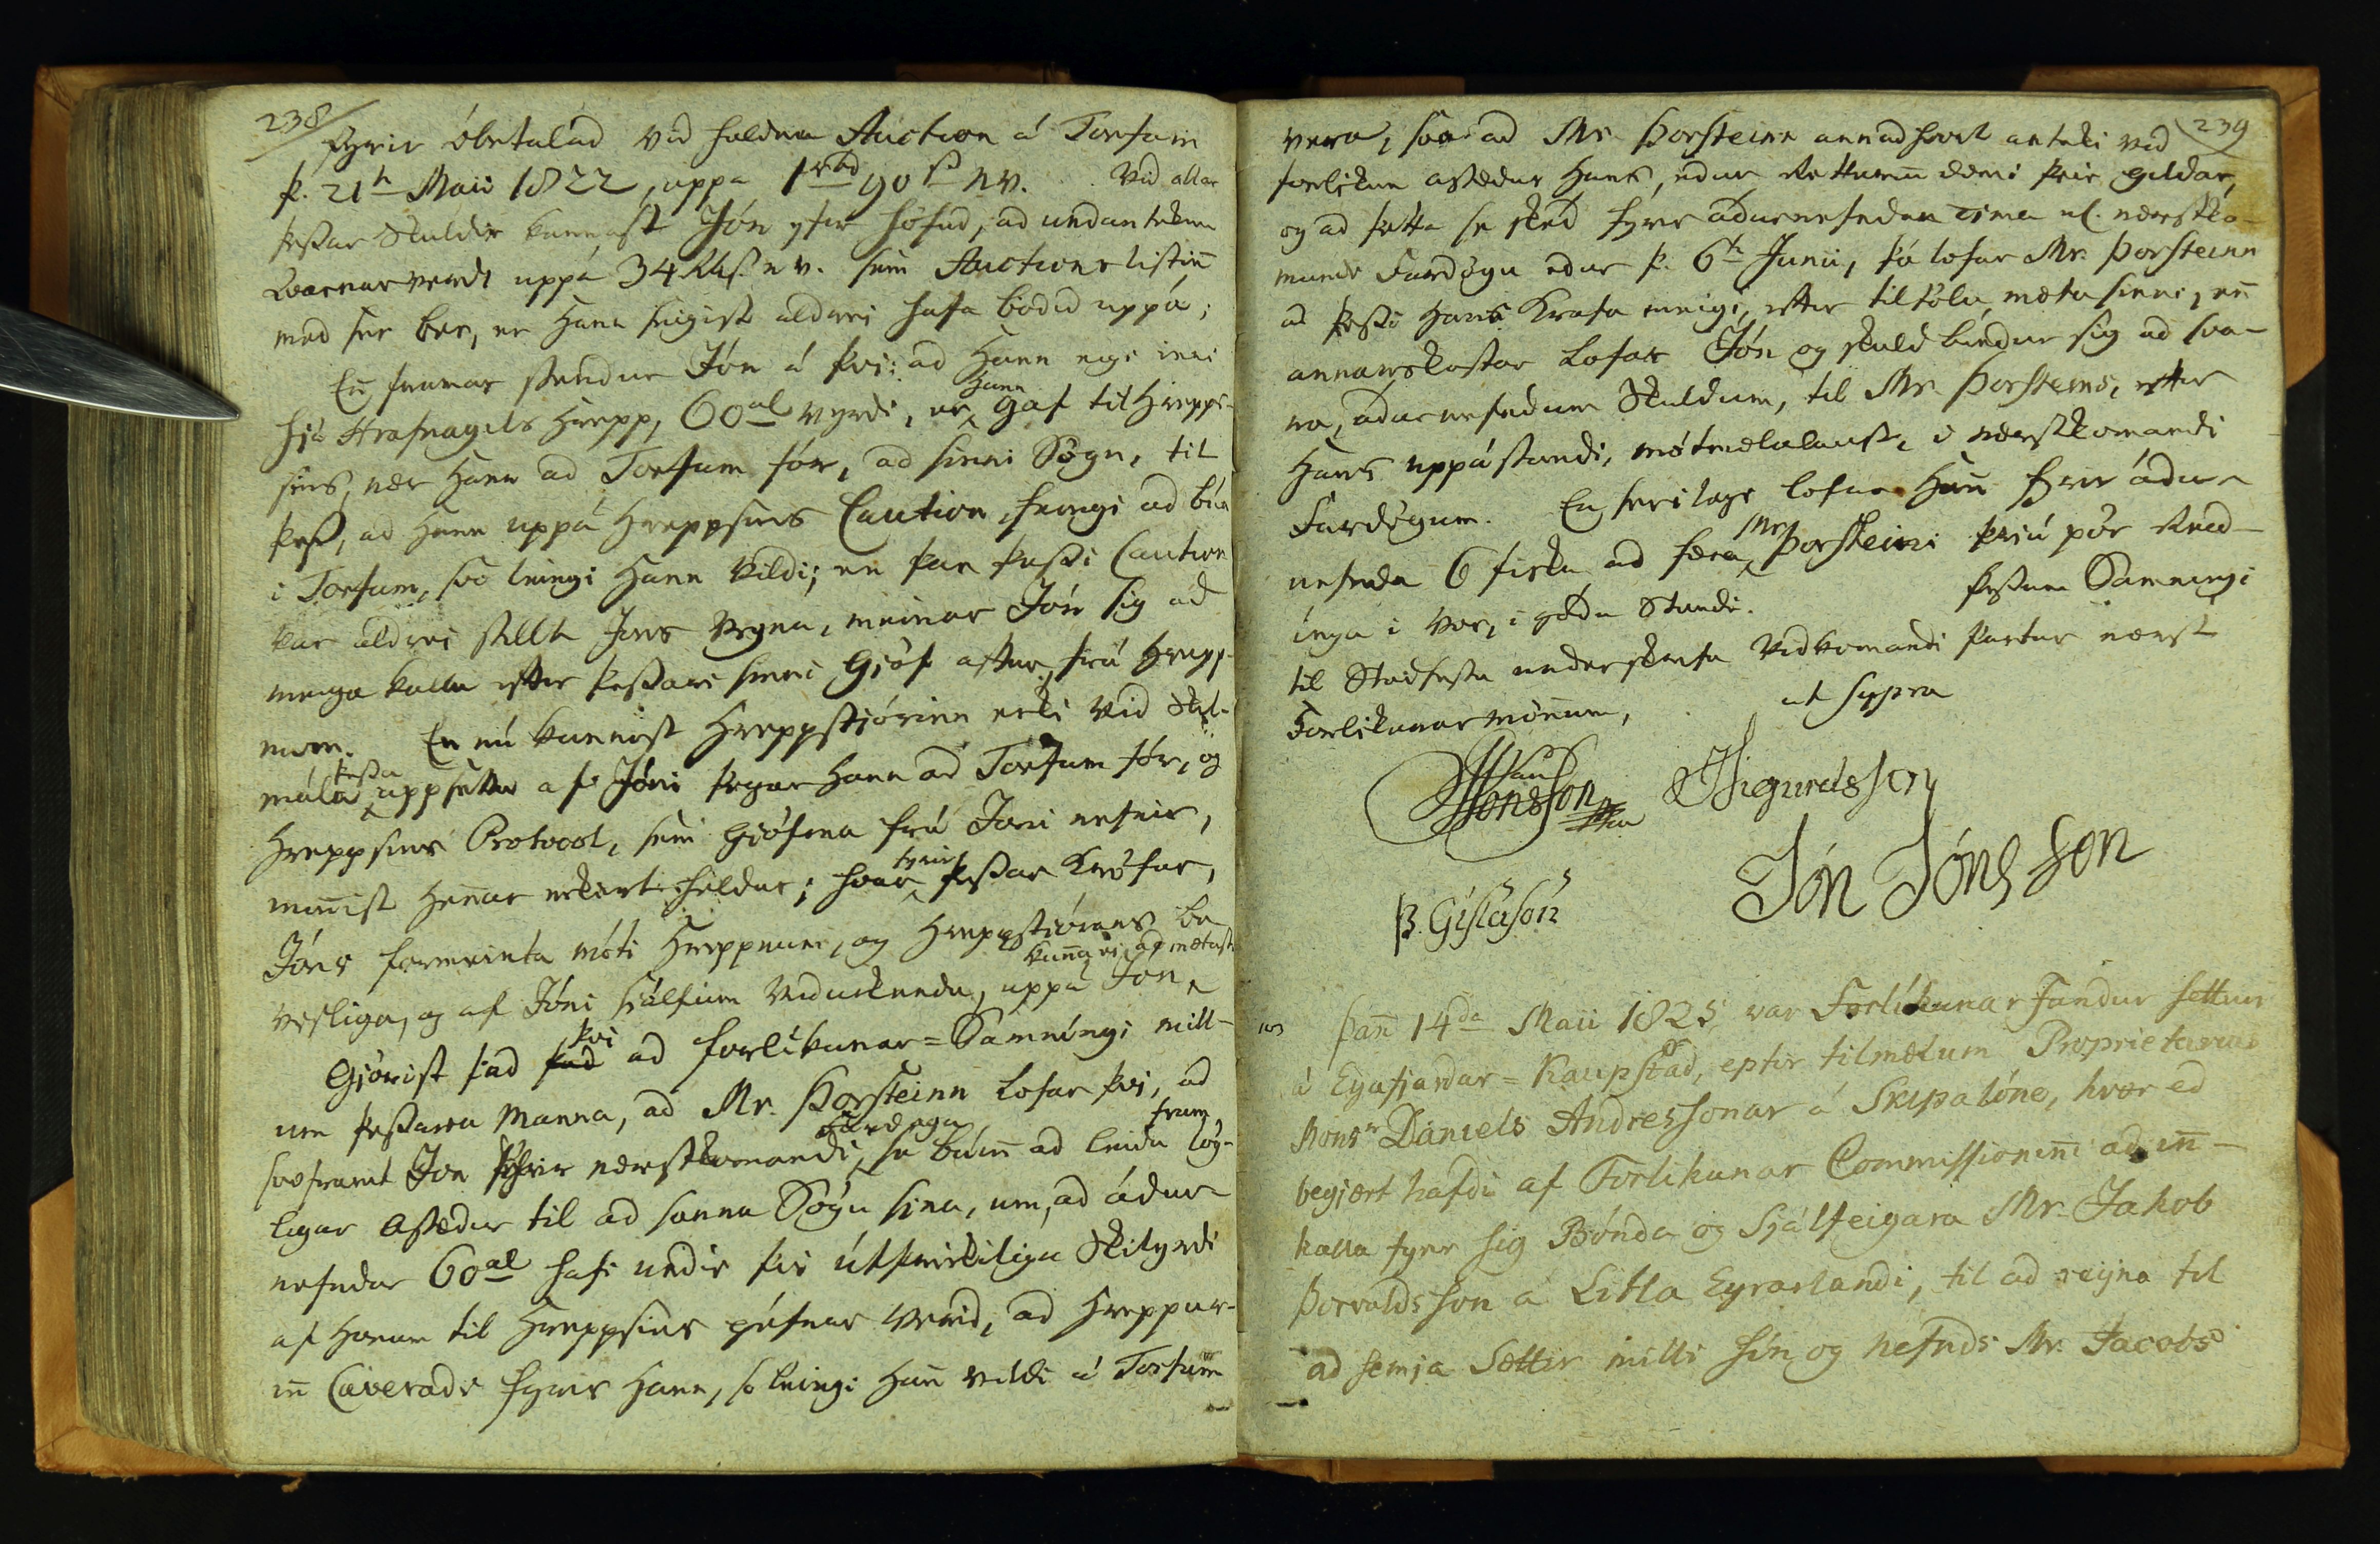 238
fyrir óbetalad vid haldna Auction á Torfum
þ. 21t Maii 1822, uppa 1rbd 90 s n.v. Vid allar
þessar Skuldir kannast Jón yfir höfud, ad undanteknu
Qvarnarverdi uppá 34 rbs. n.v. sem Auctions listin̄
med ser ber, er Hann seigist aldrei hafa bodid uppá;
En̄ framar stendur Jón á því: ad Hann eigi inni
hjá Hrafnagils Hrepp, 60al virdi, er Hann gaf til Hrepps-
sins, nær Hann ad Torfum fór, ad sinni Sögn, til
þess, ad Hann uppá Hreppsins Caution, feingi ad búa
i Torfum, svo leingi Hann vildi; en þar þessi Caution
var aldrei stillt Jóns vegna, meinar Jón sig ad
meiga kalla eftir þessari sinni Gjöf aftur frá Hrepp-
num. En nú kannast Hreppstjórinn ecki vid Skil-
mála þessa uppsetta af Jóni þegar Hann ad Torfum fór, og
Hreppsins Protocol, sem Gjöfina frá Jóni nefnir,
min̄ist Hennar eckert heldur; hvar fyrir þessar Kröfur,
Jóns formeinta móti Hreppnum, og Hreppstjórans be-
visliga, og af Jóni sjálfum vidurkenda, uppá Jón, kun̄a ei ad mætast
Gjörist þad því ad forlíkunar=Samníngi mill-
um þessara Manna, ad Mr. Þorsteinn lofar því, ad
svoframt Jón fyrir næstkomandi Fardaga, se búin̄ ad leida fram lög-
ligar Astædur til ad sanna Sögu sína, um, ad ádur-
nefndar 60al hafi undir því útþrickiliga Skilyrdi
af Honum til Hreppsins géfnar verid, ad Hreppur-
in̄ Caverade fyrir Hann, so leingi Han̄ vildi á Torfum
239
vera, svo ad Mr Þorsteinn annadhvort antaki vid
forlíkun astædur Hans, edur Retturin̄ dæmi þær gildar,
og ad þetta se sked fyrir ádurnefndan tima nl. næstko-
mandi Fardögu edur þ. 6t Junii, þá lofar Mr. Þorsteinn
ad þessi Hans Krafa meigi, eftir tiltölu mæta sinni, en̄
annarskostar lofar Jón og skuldbindur sig ad sva-
ra, ádurnefndum Skuldum, til Mr. Þorsteins, eftir
Hans uppástandi, mótmælalaust, i næstkomandi
Fardögum. En̄ sérílage lofar Han̄ fyrir ádur-
nefnda 6 fiska ad færa Mr Þorsteini þrjú pör Red-
inga i vor, i góda Standi. Þessum Samningi
til Stadfestu underskrifa Vidkomandi Partar næst
Forlíkunarmönnum, ut supra
Jonsson
Sigurdsson
Þ. Gíslason
Jón Jónsson
Þan̄ 14da Maii 1825 var Forlíkunar Fundur settur
á Eyafjardar=Kaupstad, eptir tilmælum Proprietarius
Monsr Daniels Andressonar á Skipalóne, hvør ed
begjært hafdi af Forlikunar Commissionin̄i ad in̄-
kalla fyrer sig Bónda og Sjálfeigara Mr. Jakob
Þorvaldsson á Litla Eyrarlandi, til ad reyna til
ad semja Sætter milli sín og nefnds Mr. Jacobs